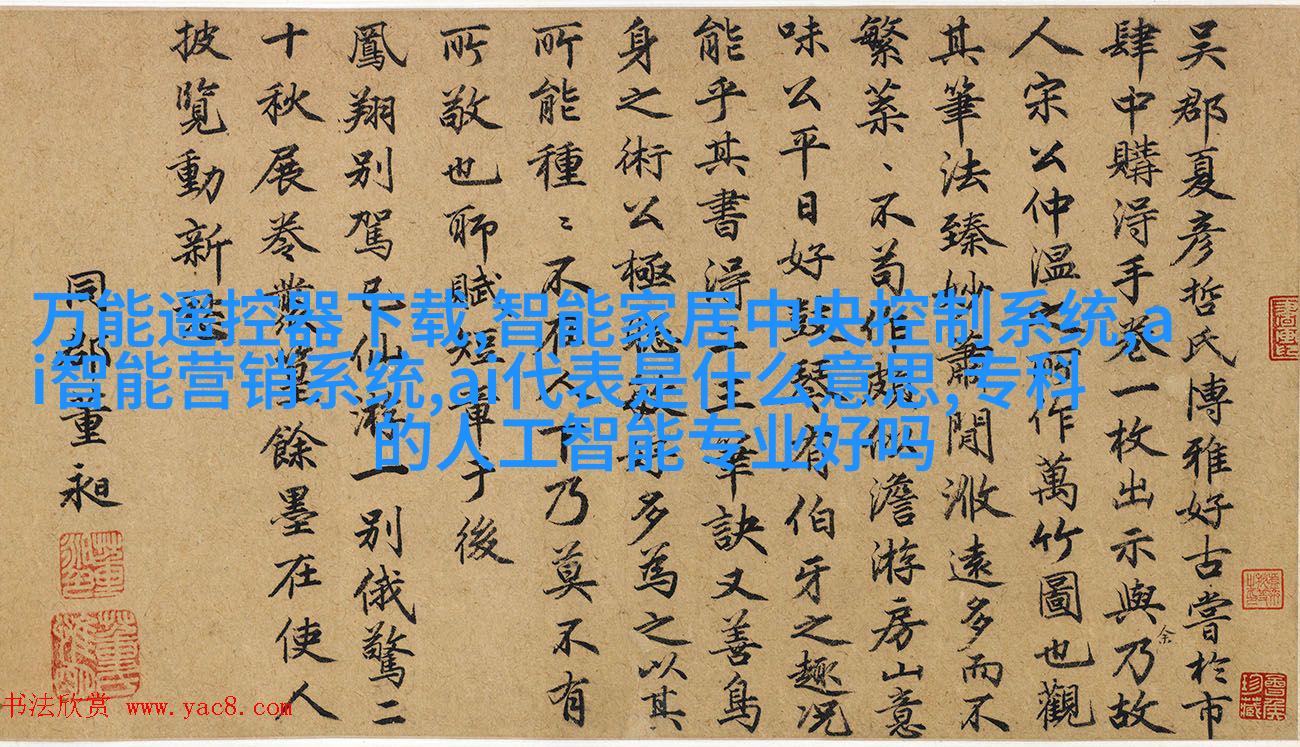 吴郡夏彦哲氏博雅好古嘗於市
肆中購得手卷一枚出示與余乃故
人宋公仲温之所作萬竹圖也觀
其筆法臻妙蕭閒遠多而不
繁〻不苟作似澹游房山意
味公平日好鼓琴有伯牙之趣况
能乎其書得二王筆訣又善鳥
身之術公極多為之以其
所能種〻不有人下乃莫不有
所敬也聊賦短章于後
鳳翔別駕已仙游一别俄驚二
十秋展卷叢篁餘墨在使人
披覽動新
同郡重昶
万能遥控器下载,智能家居中央控制系统,a
i智能营销系统,ai代表是什么意思,专科
的人工智能专业好吗
书法欣赏 www.yac8.com